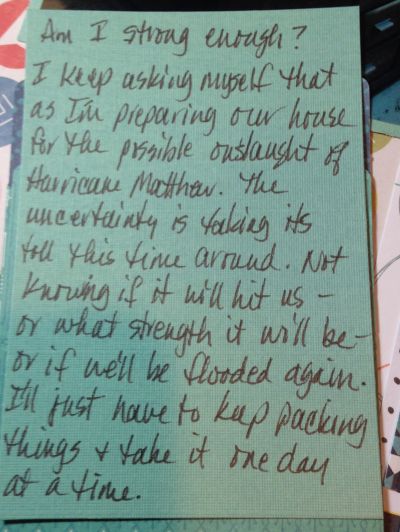 Am I strong enough?
I keep asking myself that
as I'm preparing our house
for the possible onslaught of
Hurricane Matthew. The
uncertainty is taking its
toll this time around. Not
knowing if it will hit us –
or what strength it will be –
or if we'll be flooded again.
I'll just have to keep packing
things + take it one day
at a time.